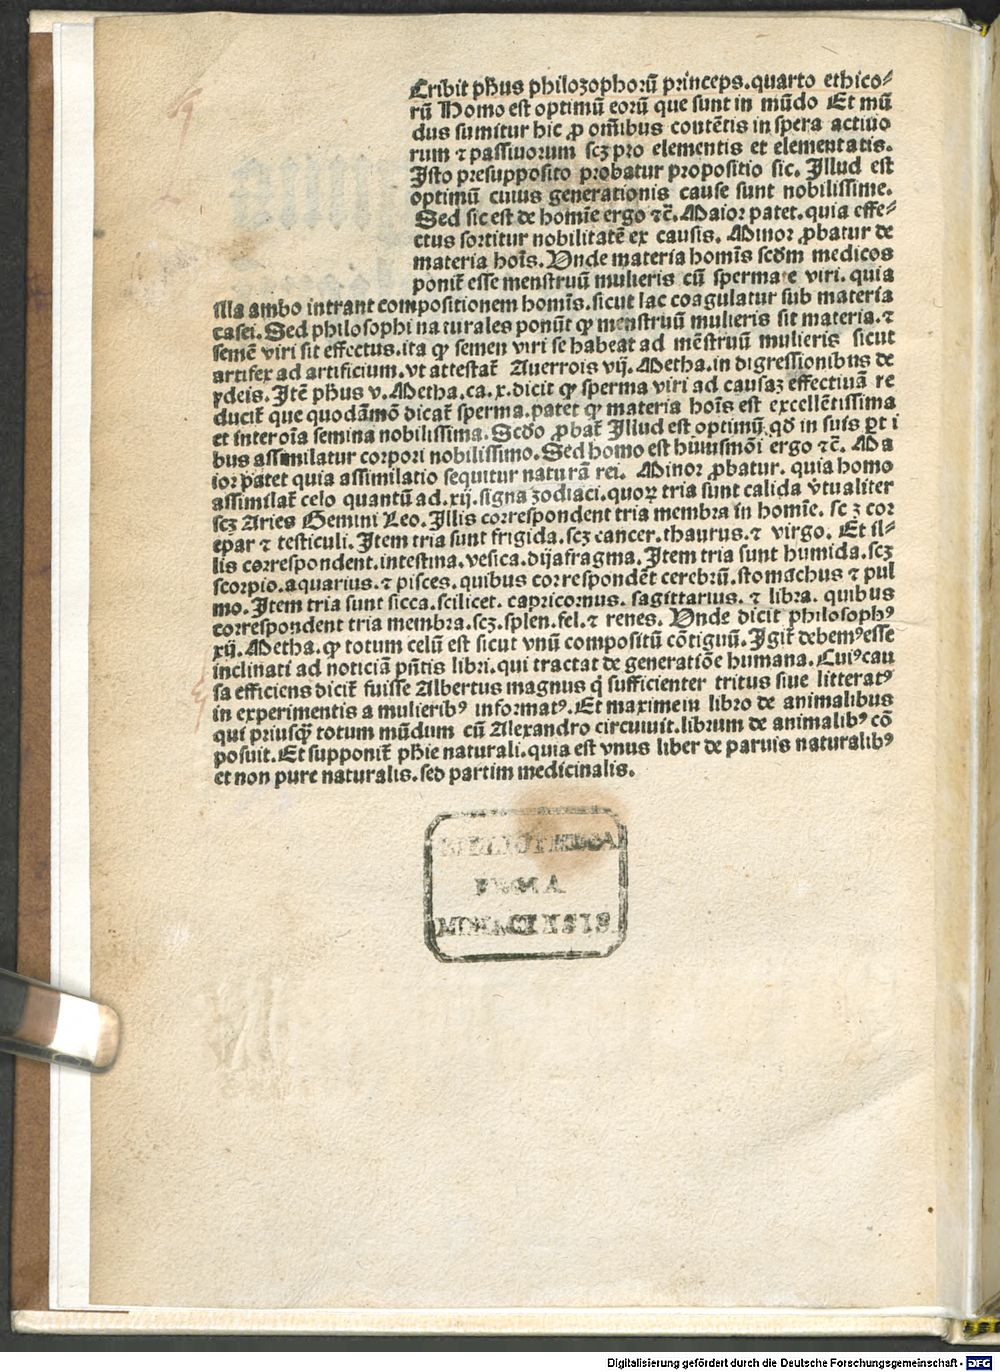 Cribit phūs philozophorū princeps.quarto ethico⸗
rū Homo est optimū eorū que sunt in mūdo Et mū
dus sumitur hic ꝓ om̄ibus contētis in spera actiuo
rum ⁊ passiuorum scꝫ pro elementis et elementatis.
Isto presupposito probatur propositio sic. Illud est
optimū cuius generationis cause sunt nobilissime.
Sed sic est de homīe ergo ⁊c̄. Maior patet. quia effe⸗
ctus sortitur nobilitatē ex causis. Minor ꝓbatur de
materia hoīs. Unde materia homīs scd̄m medicos
ponit̄ esse menstruū mulieris cū sperma e viri. quia
illa ambo intrant compositionem homīs. sicut lac coagulatur sub materia
casei. Sed philosophi na turales ponūt ꝙ menstruū mulieris sit materia. ⁊
semē viri sit effectus. ita ꝙ semen viri se habeat ad mēstruū mulieris sicut
artifex ad artificium. vt attestat̄ Auerrois vij. Metha. in digressionibus de
ydeis. Itē phūs v. Metha. ca. x. dicit ꝙ sperma viri ad causaꝫ effectiuā re
ducit̄ que quodāmō dicat̄ sperma. patet ꝙ materia hoīs est excellētissima
et inter oīa semina nobilissima. Scd̄o ꝓbat̄ Illud est optimū qd̄ in suis ꝑt i
bus assimilatur corpori nobilissimo. Sed homo est hūiusmōi ergo ⁊c̄. Ma
ior patet quia assimilatio sequitur naturā rei. Minor ꝓbatur. quia homo
assimilat̄ celo quantū ad. xij. signa zodiaci. quoꝝ tria sunt calida v̄tualiter
scꝫ Aries Gemini Leo. Illis correspondent tria membra in homīe. sc ꝫ cor
epar ⁊ testiculi. Item tria sunt frigida. scꝫ cancer. thaurus. ⁊ virgo. Et il⸗
lis correspondent. intestina. vesica. dijafragma. Item tria sunt humida. scꝫ
scorpio. aquarius. ⁊ pisces. quibus correspondēt cerebrū. stomachus ⁊ pul
mo. Item tria sunt sicca. scilicet. capricornus. sagittarius. ⁊ libra. quibus
correspondent tria membra. scꝫ. splen. fel. ⁊ renes. Unde dicit philosophꝰ
xij. Metha. ꝙ totum celū est sicut vnū compositū cōtiguū. Igit̄ debemꝰ esse
inclinati ad noticiā pn̄tis libri. qui tractat de generatiōe humana. Cuiꝰ cau
sa efficiens dicit̄ fuisse Albertus magnus q̇ sufficienter tritus siue litteratꝰ
in experimentis a mulieribꝰ informatꝰ. Et maxime in libro de animalibus
qui priusꝗ̄ totum mūdum cū Alexandro circuiuit. librum de animalibꝰ cō
posuit. Et supponit̄ phie naturali. quia est vnus liber de paruis naturalibꝰ
et non pure naturalis. sed partim medicinalis.
Digitalisierung gefördert durch die Deutsche Forschungsgemeinschaft - DFG